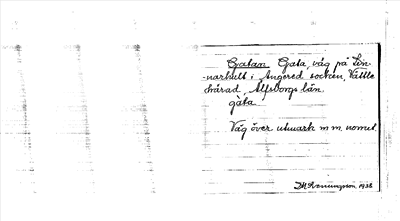 Gatan Gata, väg på Lin-
narhult i Angered socken, Vättle
härad, Älfsborgs län.
gàta
Väg över utmark m m norrut.
1938